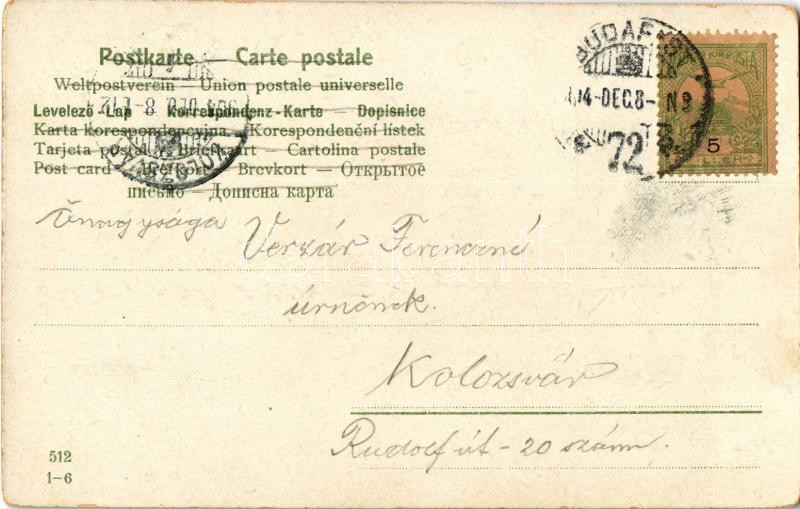 Postkarte — Carte postale
Weltpostverein — Union postale universelle
Levelező-Lap — Korrespondenz-Karte — Dopisnice
Karta korespondencyjna — Korespondenční lístek
Tarjeta postal — Briefkaart — Cartolina postale
Post card — Brefkort — Brevkort — Открытое
письмо — Дописна карта
BUDAPEST
904 DEC 8
72
5
KOLOZSVÁR
Őnagysága Verzár Ferenczné
úrnőnek.
Kolozsvár
Rudolf út - 20 szám.
512
1–6